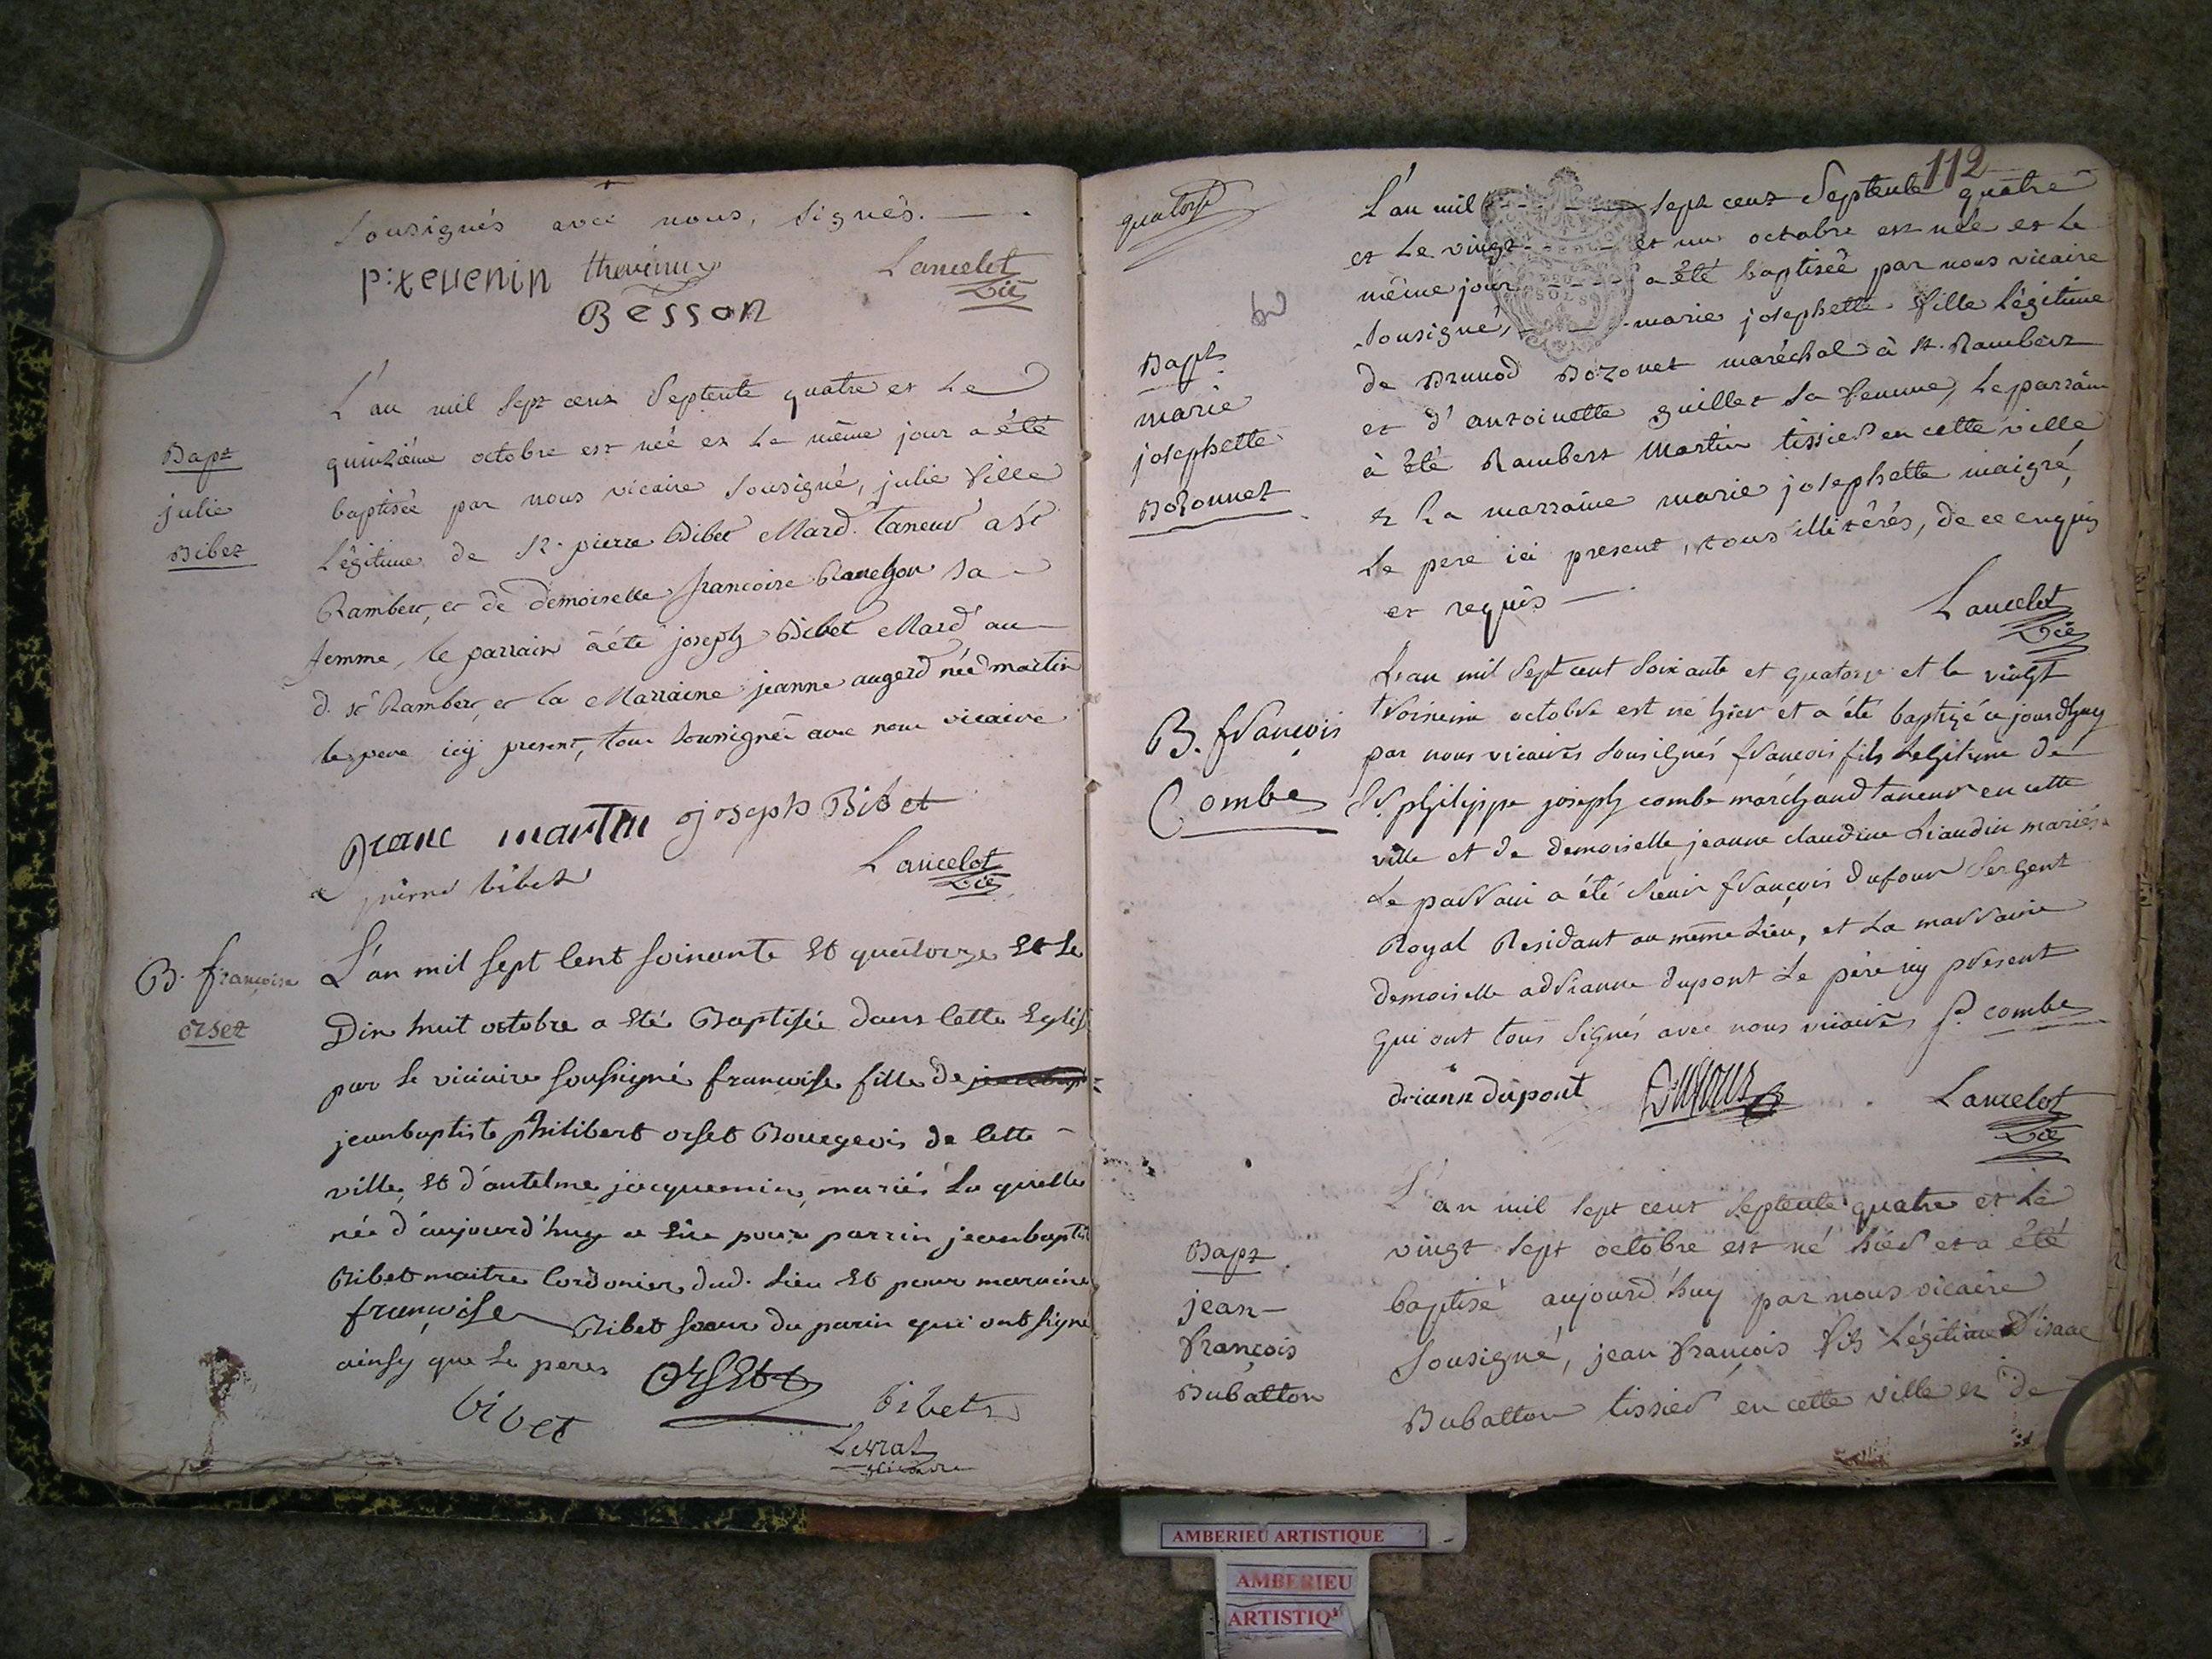 sousignés avec nous, signés.
p: tevenin thevenin Lancelot
Besson Vic
Bapt
julie
Bibet
L'an mil sept cent septente quatre et le
quinzième octobre est née et le même jour a été
baptisée par nous vicaire sousigné, julie fille
légitime de sr. pierre Bibet Mard. taneur a St
Rambert, et de demoiselle francoise sa
femme, le parrain a été joseph Bibet Mard au
d. st Rambert, et la Marraine jeanne augerd née martin
le pere icy present, tous soussignés avec nous vicaire
martin joseph Bibet
pierre bibet Lancelot
Vic
B. francoise
orset
L'an mil sept cent soixante et quatorze et le
Dix huit octobre a eté Baptisée dans cette Eglise
par le vicaire soussigné francoise fille de
jeanbaptiste philibert orset Bourgeois de cette
ville et d'antelme jacquemin mariés la quelle
née d'aujourd'huy a eue pour parrin jeanbaptiste
Bibet maitre Cordonier dud. lieu et pour maraine
francoise Bibet soeur du parin qui ont signé
ainsy que le pere
orsett
bibet bibet
Levrat
vicaire
112
quatorze
Bapt
marie
josephette
Bozonnet
L'an mil sept cent septente quatre
et le vingt et un octobre est née et le
même jour a été baptisée par nous vicaire
sousigné, marie josephette fille légitime
de Brunod Bozonet maréchal à st. Rambert
et d'antoinette guillet sa femme, le parrain
à été Rambert Martin tissier en cette ville
et la marraine marie josephette maigre,
le pere ici present, tous illitérés, de ce enquis
et requis
Lancelot
Vic
B. françois
Combe
L'an mil sept cent soixante et quatorze et le vingt
troisieme octobre est né hier et a été baptizé ce jourdhuy
par nous vicaires sousignés françois fils legitime de
Sr. philippe joseph combe marchand taneur en cette
ville et de demoiselle jeanne claudine Liaudin mariés
Le parrain a été sieur françois dufour sergent
Royal Residant au même Lieu, et La marraine
demoiselle adrianne dupont Le père icy présent
qui ont tous signés avec nous vicaires P. combe
drianne dupont Dufour Lancelot
Vic
Bapt
jean
françois
Bubatton
L'an mil sept cent septente quatre et le
vingt sept octobre est né hier et a été
baptisé aujourd'huy par nous vicaire
sousigné, jean françois fils légitime d'isaac
Bubatton tissier en cette ville et de
AMBERIEU ARTISTIQUE
AMBERIEU
ARTISTIQ